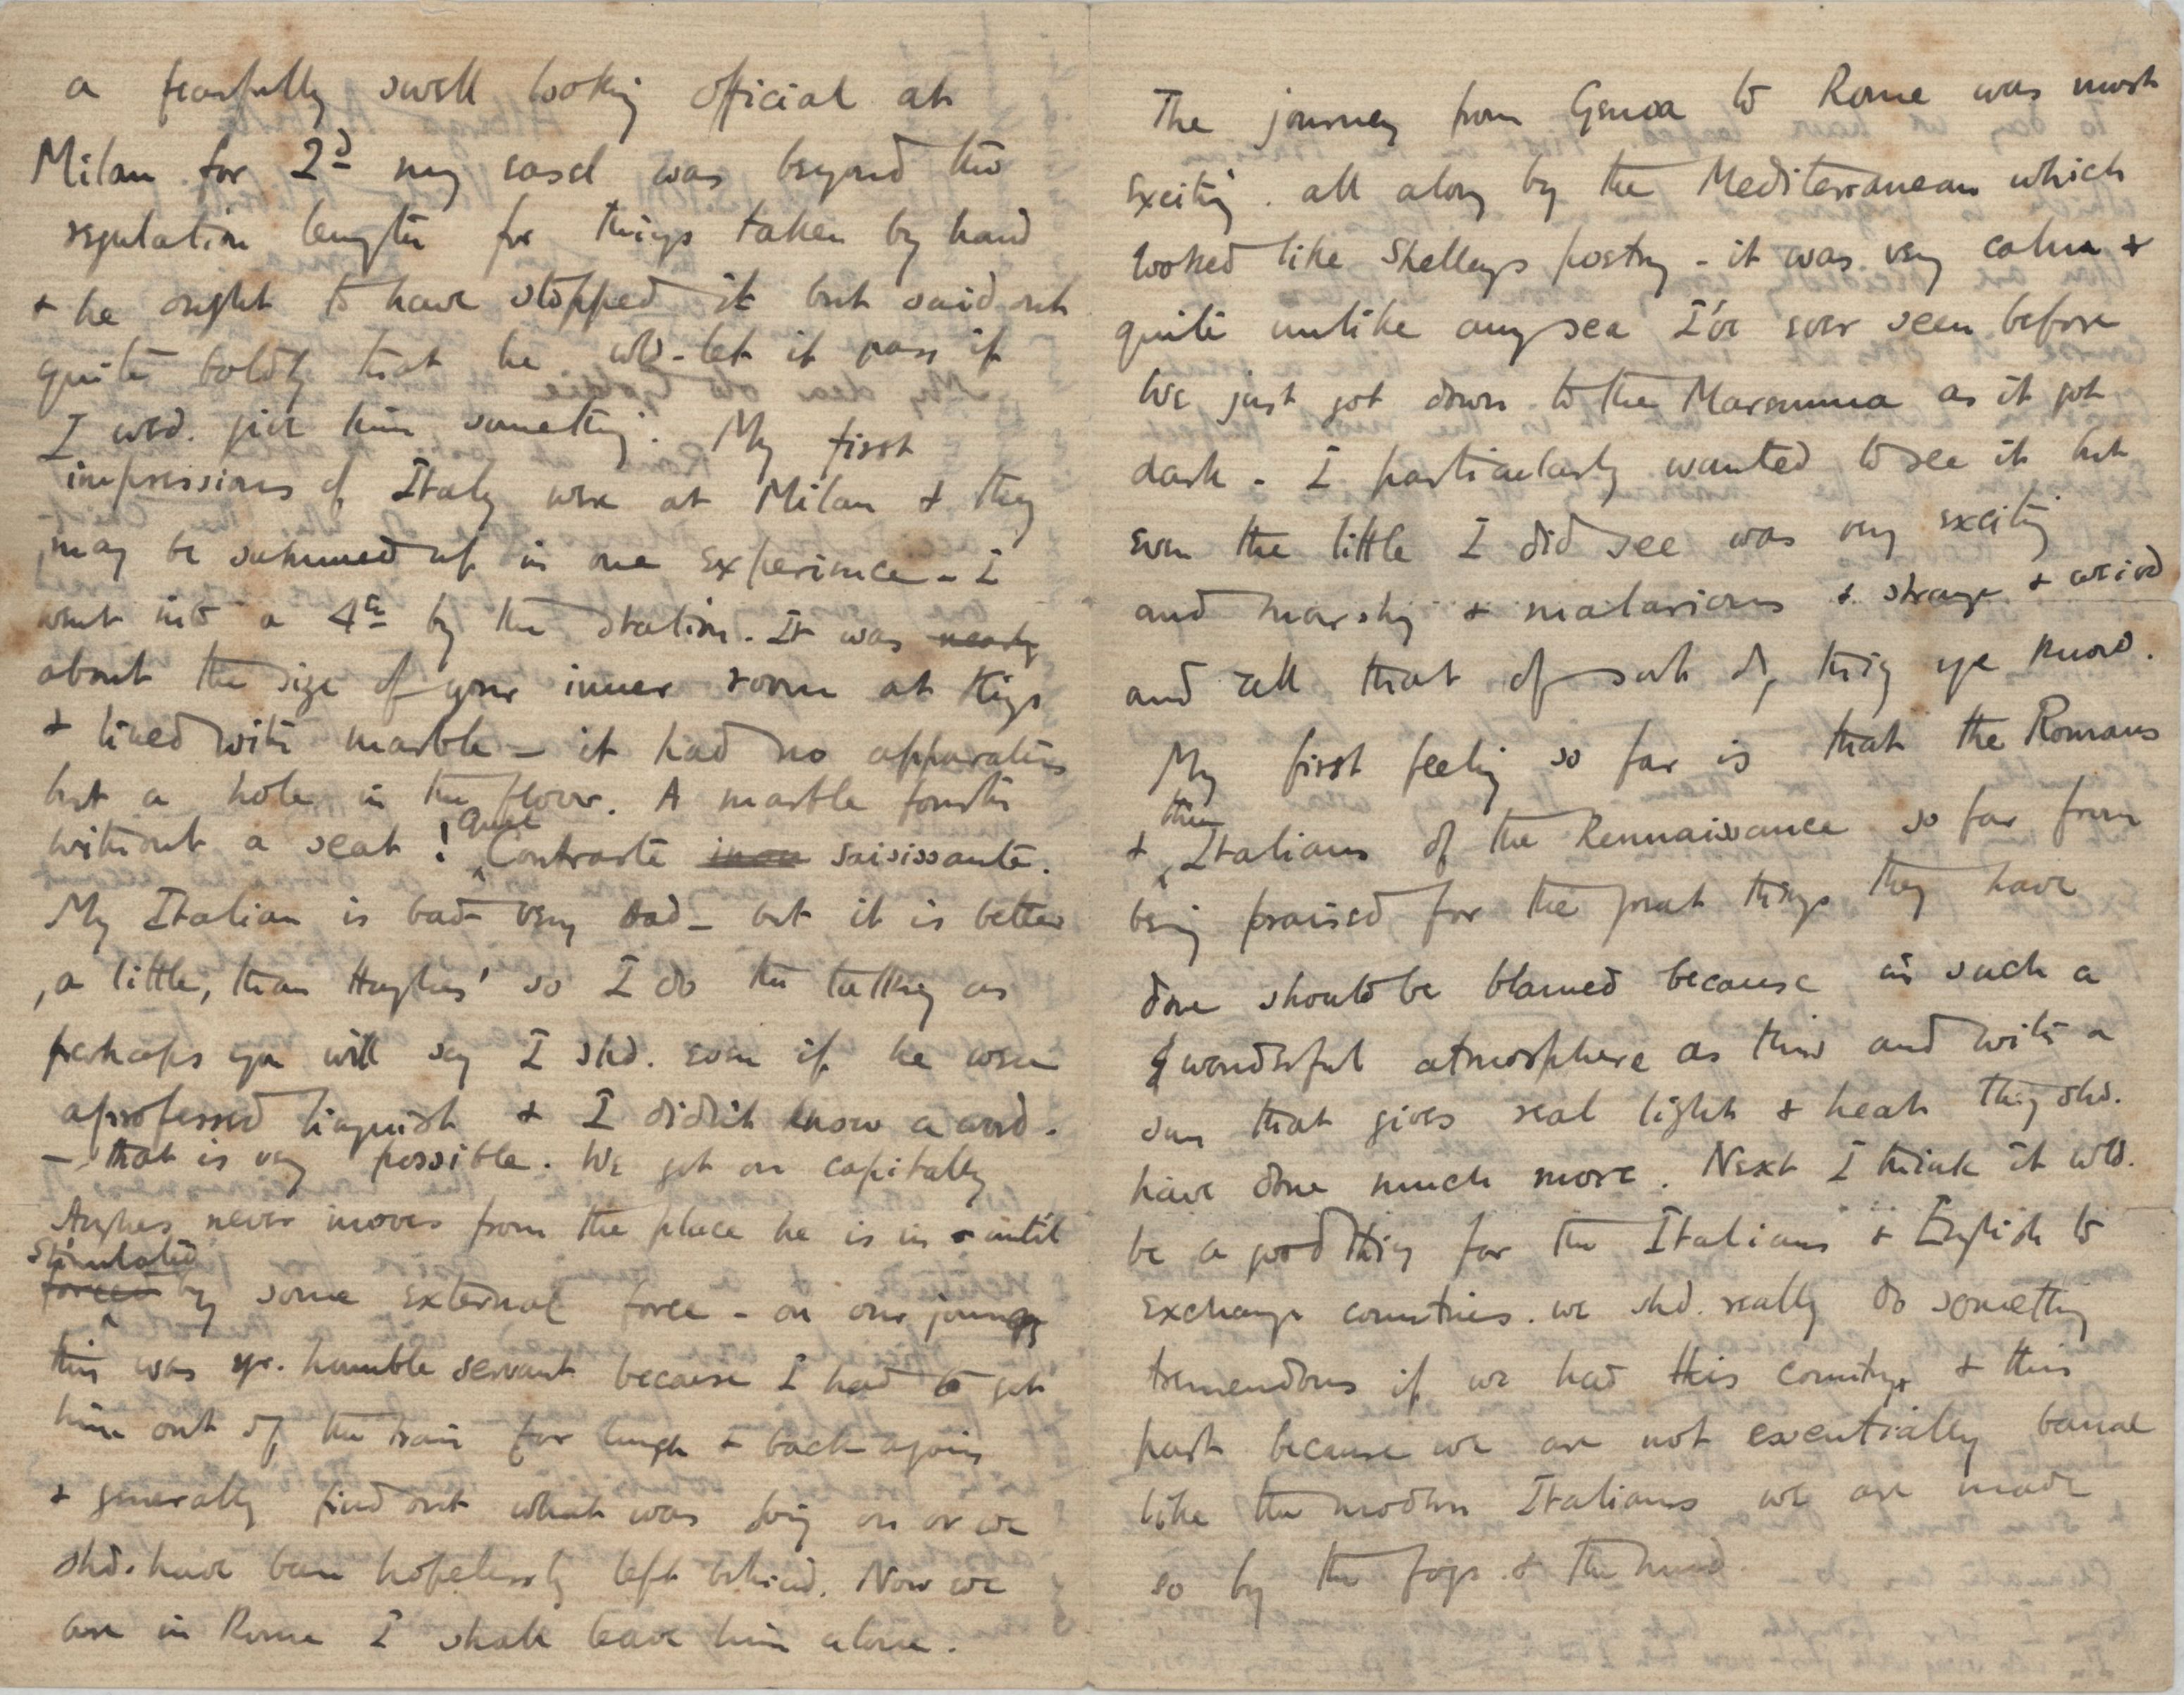 a fearfully swell looking official at
Milan for 2d my easel was beyond the
regulation length for things taken by hand
+ he ought to have stopped it but said out
quite boldly that he wld. let it pass if
I wld. give him something. My first
impressions of Italy were at Milan + they
may be summed up in one experience - I
went into a 4th by the station. It was nearly
about the size of your inner room at Kigs
+ lined with marble - it had no apparatus
but a hole in the floor. A marble fourth
without a seat! Quel Contraste saisissante.
My Italian is bad very bad - but it is better
, a little, than Hughes' so I do the talking as
perhaps you will say I shd. even if he were
a professed linguist + I didn't know a word.
- that is very possible. We get on capitally
Hughes never moves from the place he is in until
stimulated
forced by some external force - on our journey
this was yr. humble servant because I had to get
him out of the train for lunch + back again
+ generally find out what was going on or we
shd. have been hopelessly left behind. Now we
are in Rome I shall leave him alone.
The journey from Genoa to Rome was most
exciting. all along by the Mediterranean which
looked like Shelleys poetry - it was very calm +
quite unlike any sea I've ever seen before
We just got down to the Maremma as it got
dark - I particularly wanted to see it but
even the little I did see was very exciting
and marshy + malarious + strange + weird
and all that of sort of thing ye know.
My first feeling so far is that the Romans
then
+ Italians of the Rennaissance so far from
being praised for the great things they have
done should be blamed because in such a
wonderful atmosphere as this and with a
sun that gives real light + heat they shd.
have done much more. Next I think it wld.
be a good thing for the Italians + English to
exchange countries. we shd. really do something
tremendous if we had this country + this
past because we are not essentially banal
like the modern Italians we are made
so by the fogs + the mud.